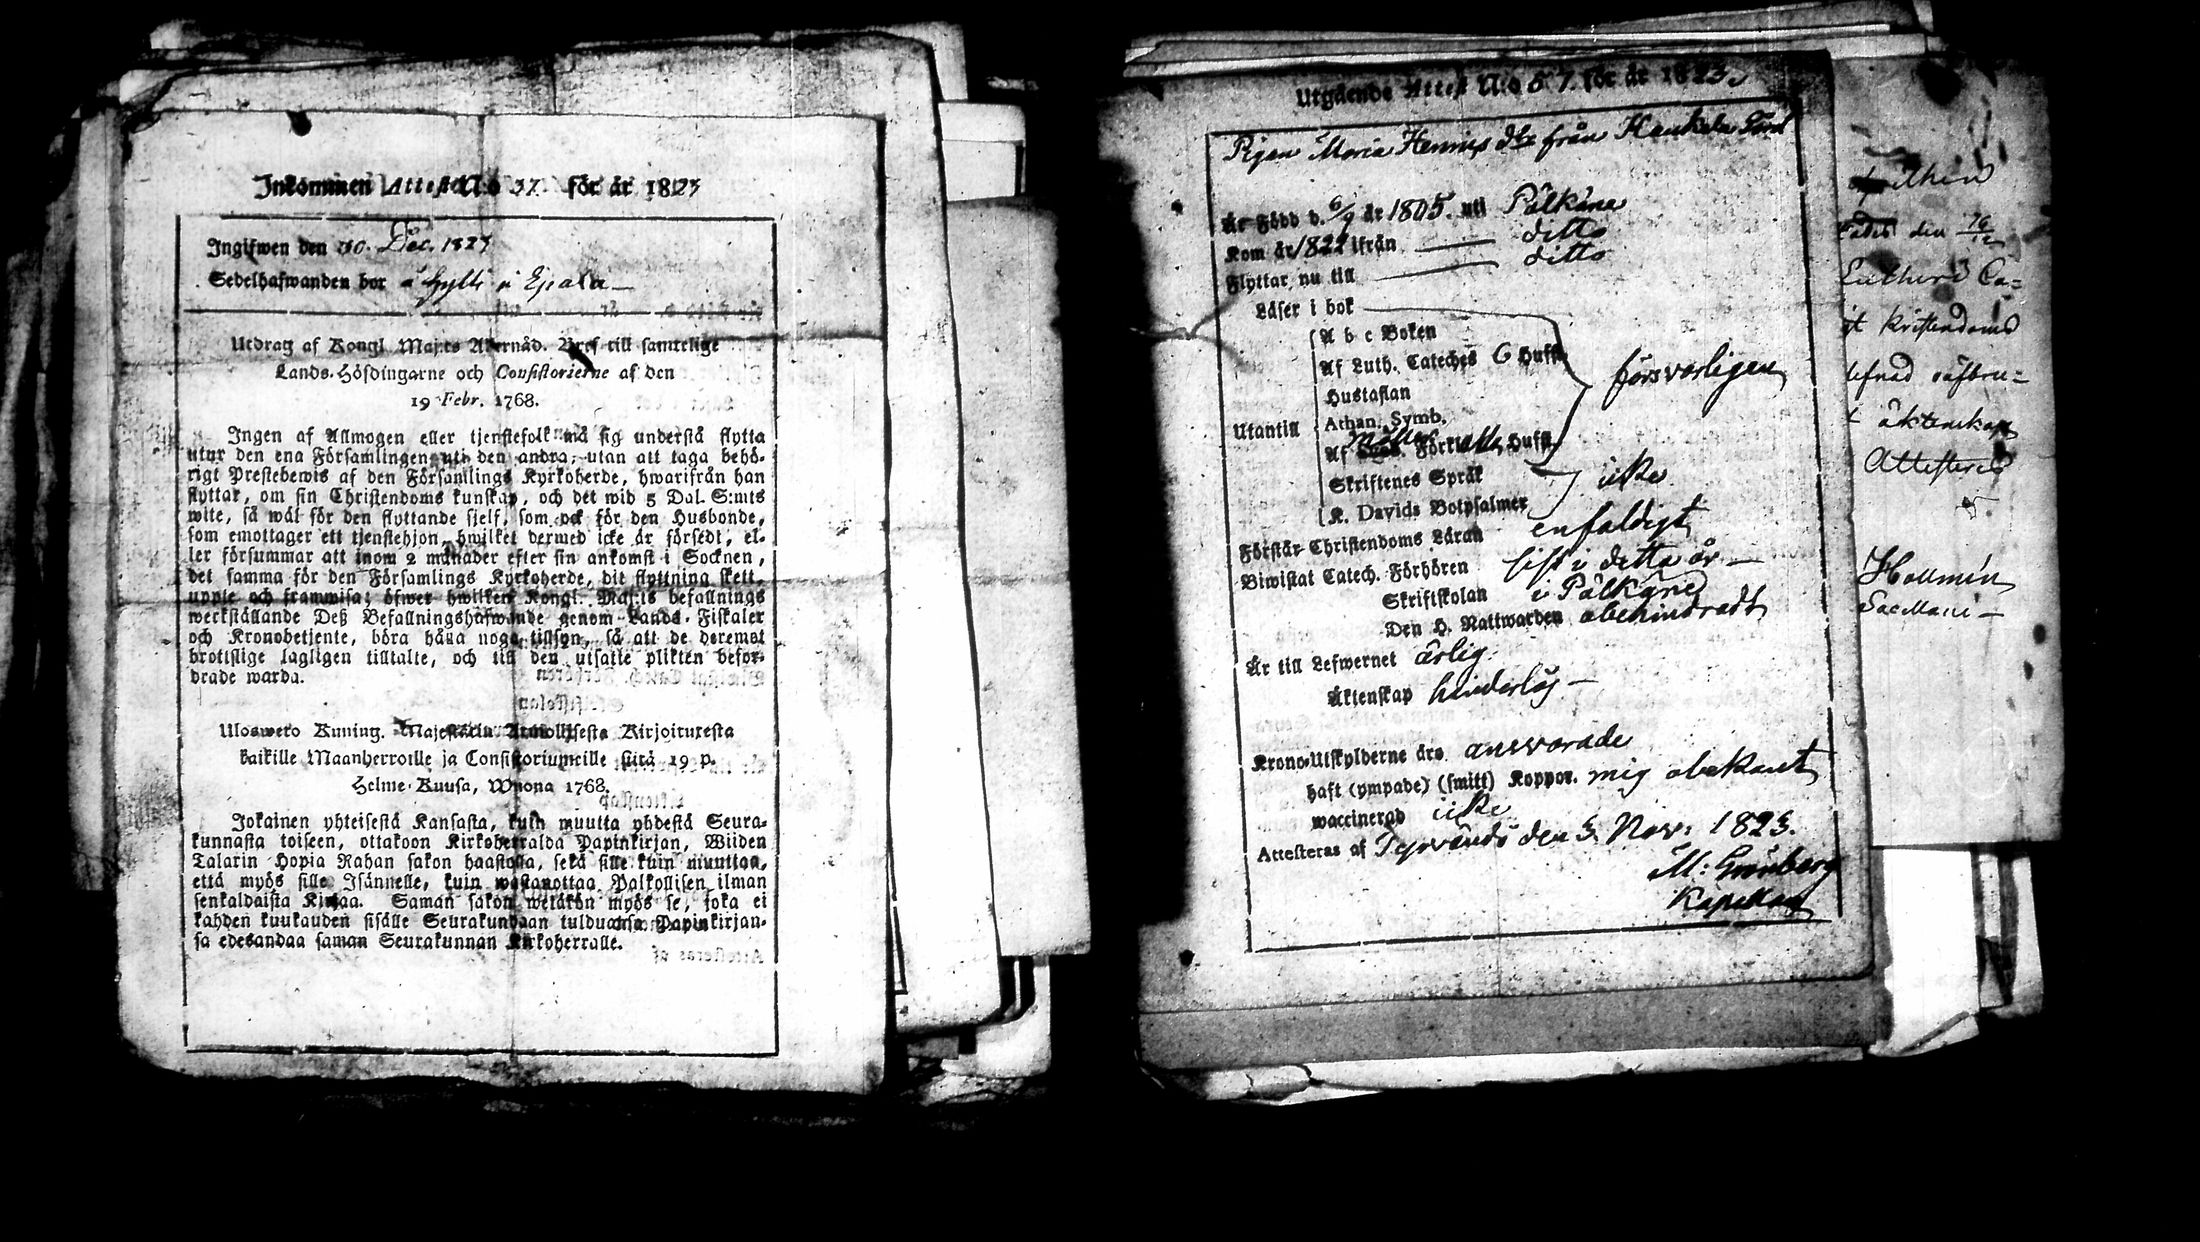 Inkommen Attest N:o 37. för år 1823
Ingifwen den 30. Dec. 1823
Sedelhafwanden bor
Utdrag af Kongl. Maj:ts Allernåd. Bref till samtelige
Lands-Höfdingarne och Consistorierne af den
19 Febr. 1768.
Ingen af Allmogen eller tjenstefolk må sig understå flytta
utur den ena Församlingen uti den andra, utan att taga behö-
rigt Prestebewis af den Församlings Kyrkoherde, hwarifrån han
flyttar, om sin Christendoms kunskap, och det wid 5 Dal. S:mts
wite, så wäl för den flyttande sjelf, som ock för den Husbonde,
som emottager ett tjenstehjon, hwilket dermed icke är försedt, el-
ler försummar att inom 2 månader efter sin ankomst i Socknen,
det samma för den Församlings Kyrkoherde, dit flyttning skett,
uppte och framwisa; öfwer hwilken Kongl. Maj:ts befallnings
werkställande Deß Befallningshafwande genom Lands-Fiskaler
och Kronobetjente, böra hålla noga tillsyn, så att de deremot
brottslige lagligen tilltalte, och till den utsatte plikten befor-
drade warda.
Ulosweto Kuning. Majestetin Armollisesta Kirjoituxesta
kaikille Maanherroille ja Consistoriumeille siitä 19 p.
Helme-Kuusa, Wuona 1768.
Jokainen yhteisestä Kansasta, kuin muutta yhdestä Seura-
kunnasta toiseen, ottakoon Kirkoherralda Papinkirjan, Wiiden
Talarin Hopia Rahan sakon haastolla, sekä sille kuin muuttaa,
että myös sille Isännelle, kuin wastanottaa Palkollisen ilman
senkaldaista Kirjaa. Saman sakon wetäkön myös se, joka ei
kahden kuukauden sisälle Seurakundaan tulduansa Papinkirjan-
sa edesandaa saman Seurakunnan Kirkoherralle.
Utgående Attest N:o 57. för år 1823.
Pigan Maria Henrics dtr från Haukela
Är Född d. 6/9 år 1805. uti Pälkäne
Kom år 1822 ifrån ditto
Flyttar nu till ditto
Läser i bok
A b c Boken
Af Luth. Cateches 6 Hufst.
Hustaflan
försvarligen
Athan. Symb.
Utantill
Af Förkl. Hufst.
Skriftenes Språk
icke
K. Davids Botpsalmer
Förstår Christendoms Läran enfaldigt
Biwistat Catech. Förhören sist i detta år
Skriftskolan i Pälkäne
Den H. Nattwarden obehindradt
Är till Lefwernet ärlig.
Äktenskap hinderlös
Krono-Utskylderne äro answarade
haft (ympade) (smitt) Koppor. mig obekant
waccinerad icke
Attesteras af Tyrvändö den 3 Nov: 1823.
M: Grönberg
Kapellan
den 16/12
Lutheri Ca=
kristendoms
äktenskap
Attesteras
Hallmén
Sacellani